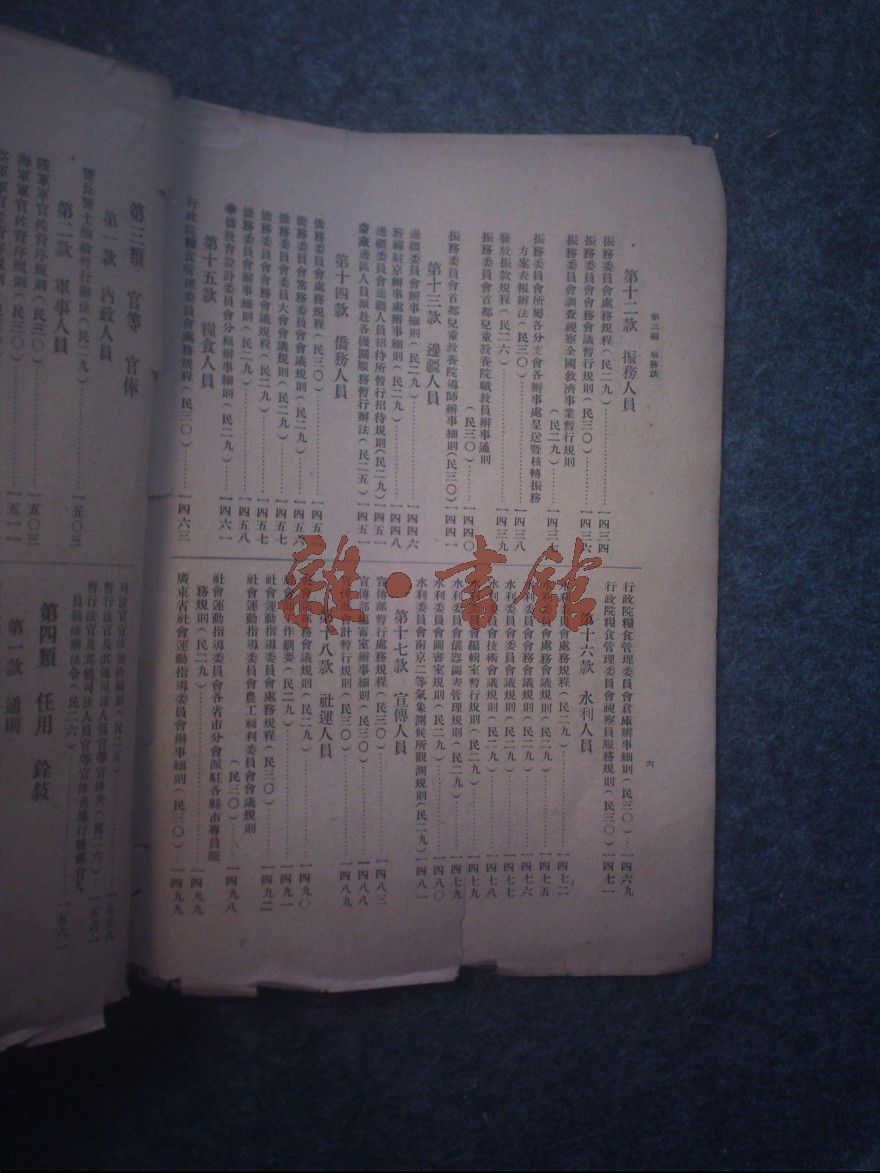 第三編 服務法
六
第十二款 振務人員
振務委員會處務規程(民二九)……一四三四
振務委員會會務會議暫行規則(民三〇)……一四三六
振務委員會調查視察全國救濟事業暫行規則
(民二九)……一四三七
振務委員會所屬各分支會各辦事處呈送暨核轉振務
方案表報辦法(民三〇)……一四三八
發放振款規程(民二六)……一四三九
振務委員會首都兒童教養院職教員辦事通則
(民三〇)……一四四〇
振務委員會首都兒童教養院導師辦事細則(民三〇)一四四一
第十三款 邊疆人員
邊疆委員會辦事細則(民二九)……一四四六
班禪駐京辦事處辦事細則(民二九)……一四四八
邊疆委員會邊疆人員招待所暫行招待規則(民二九)一四五一
蒙藏邊區人員派赴各機關服務暫行辦法(民二五)一四五一
第十四款 僑務人員
僑務委員會處務規程(民三〇)
僑務委員會常務委員會會議規則(民二九)……一四五六
僑務委員會委員大會會議規則(民二九)……一四五七
僑務委員會會務會議規程(民二九)……一四五七
僑務委員會辦事細則(民二九)……一四五八
華僑教育設計委員會分組辦事細則(民二九)……一四六一
第十五款 糧食人員
行政院糧食管理委員會處務規程(民三〇)……一四六三
行政院糧食管理委員會倉庫辦事細則(民三〇)…一四六九
行政院糧食管理委員會視察員服務規則(民三〇)一四七一
第十六款 水利人員
水利委員會處務規程(民二九)……一四七二
會處務會議規則(民二九)……一四七五
水利委員會委員會議規則(民二九)……一四七六
水利委員會技術會議規則(民二九)……一四七七
會編輯室暫行規則(民二九)……一四七八
水利委員會儀器圖夾管理規則(民二九)一四七九
水利委員會圖書室規則(民二九)……一四八〇
水利委員會南京二等氣象測候所觀測規則(民二九)一四八一
第十七款 宣傳人員
宣傳部暫行處務規程(民三〇)……一四八三
宣傳部編審室辦事細則(民三〇)……一四八八
計暫行規則(民三〇)……一四八九
第十八款 社運人員
務會議規則(民二九)……一四九〇
工作綱要(民二九)……一四九一
社會運動指導委員會處務規程(民三〇)……一四九二
社會運動指導委員會農工福利委員會會議規則
(民三〇)……一四九八
社會運動指導委員會各省市分會派駐各縣市專員服
務規則(民二九)……一四九九
廣東省社會運動指導委員會辦事細則(民三〇)…一四九九
第三類 官等 官俸
第一款 內政人員
警長警士餉給暫行辦法(民二九)……一五〇三
第二款 軍事人員
陸軍軍官佐資序規則(民三〇)……一五〇三
海軍軍官佐資序規則(民三〇)……一五一一
暫行法官及其他司法人員官等官俸表(民一六)…一五六一
第四類 任用 銓敍
第一款 通則
雜·書館